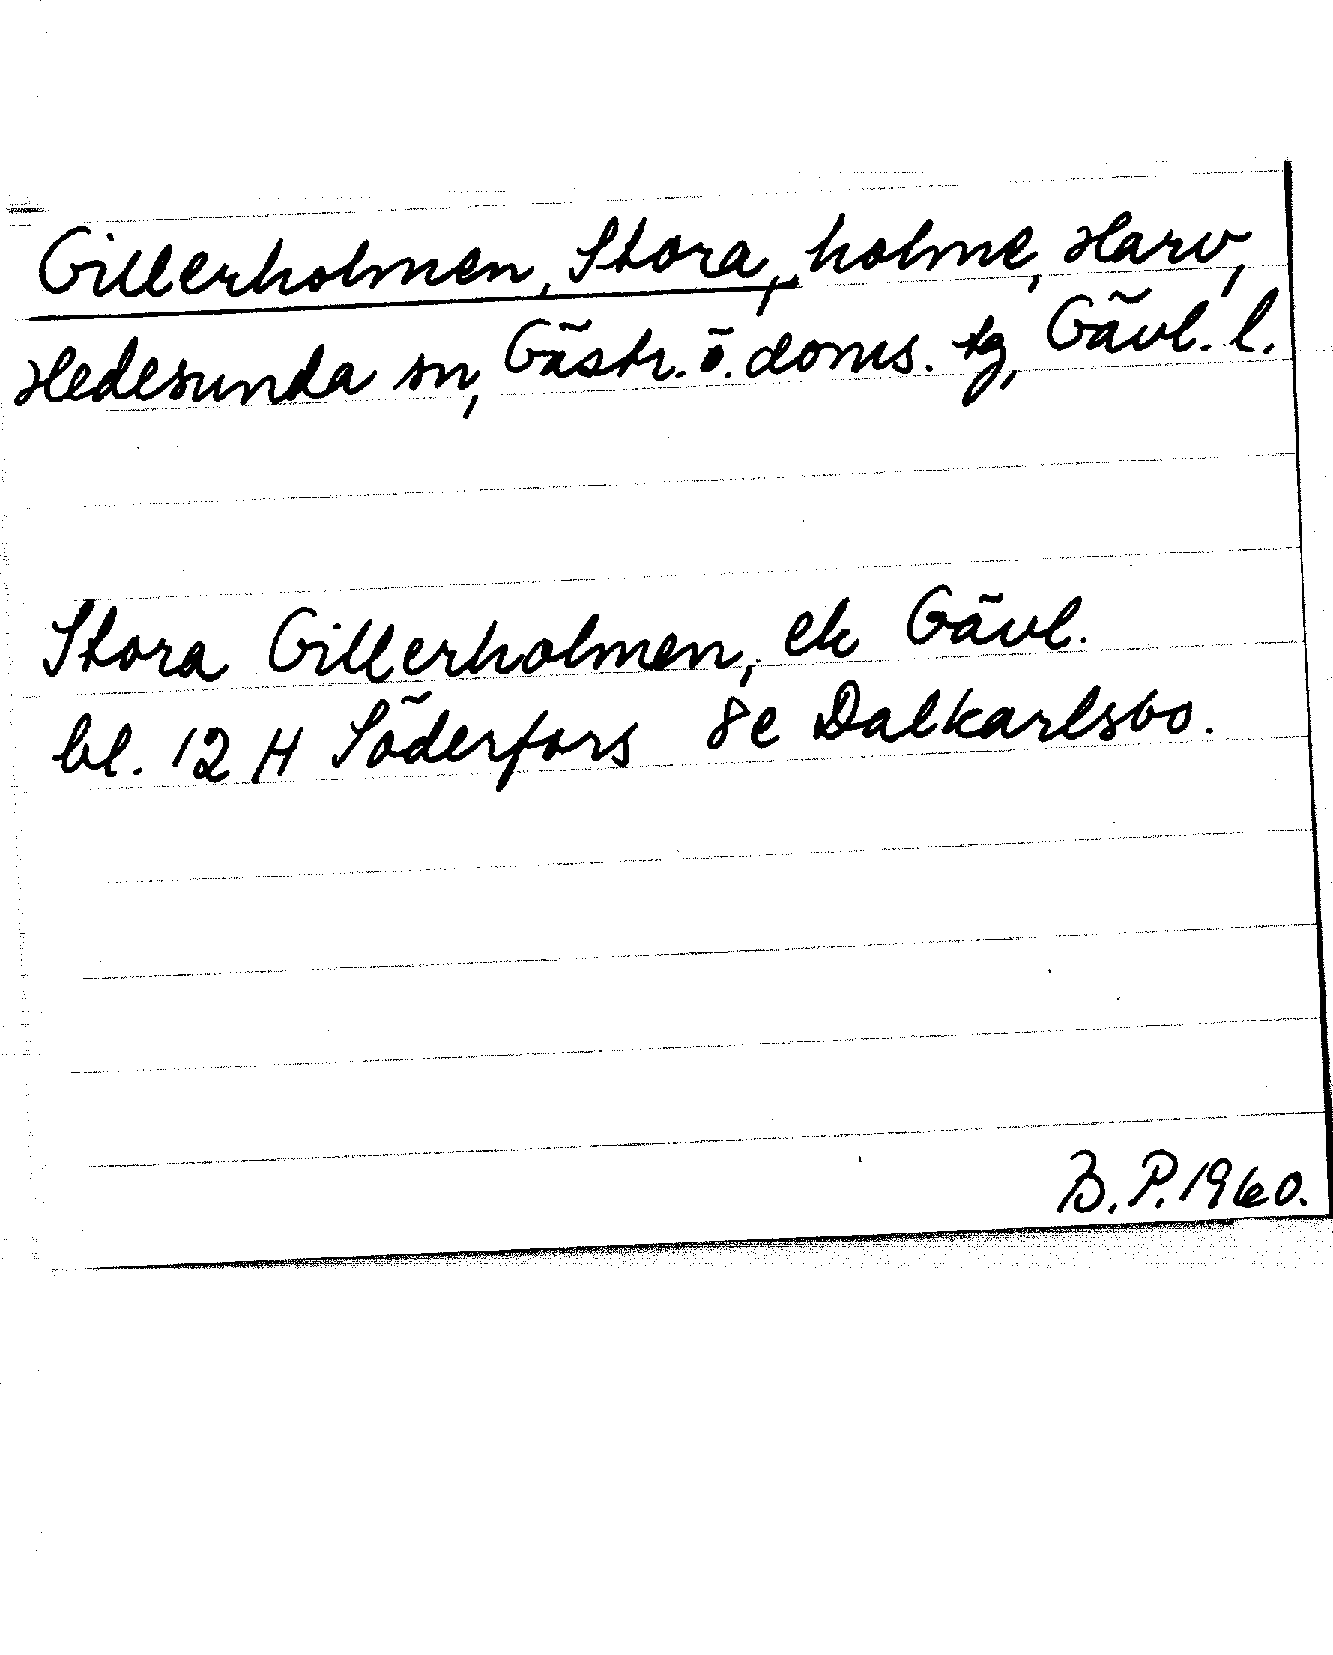 Gillerholmen, Stora, holme, Harv,
Hedesunda sn, Gästr. ö. doms. tg, Gävl. l.
Stora Gillerholmen, ek Gävl.
bl. 12 H Söderfors 8e Dalkarlsbo.
B. P. 1960.